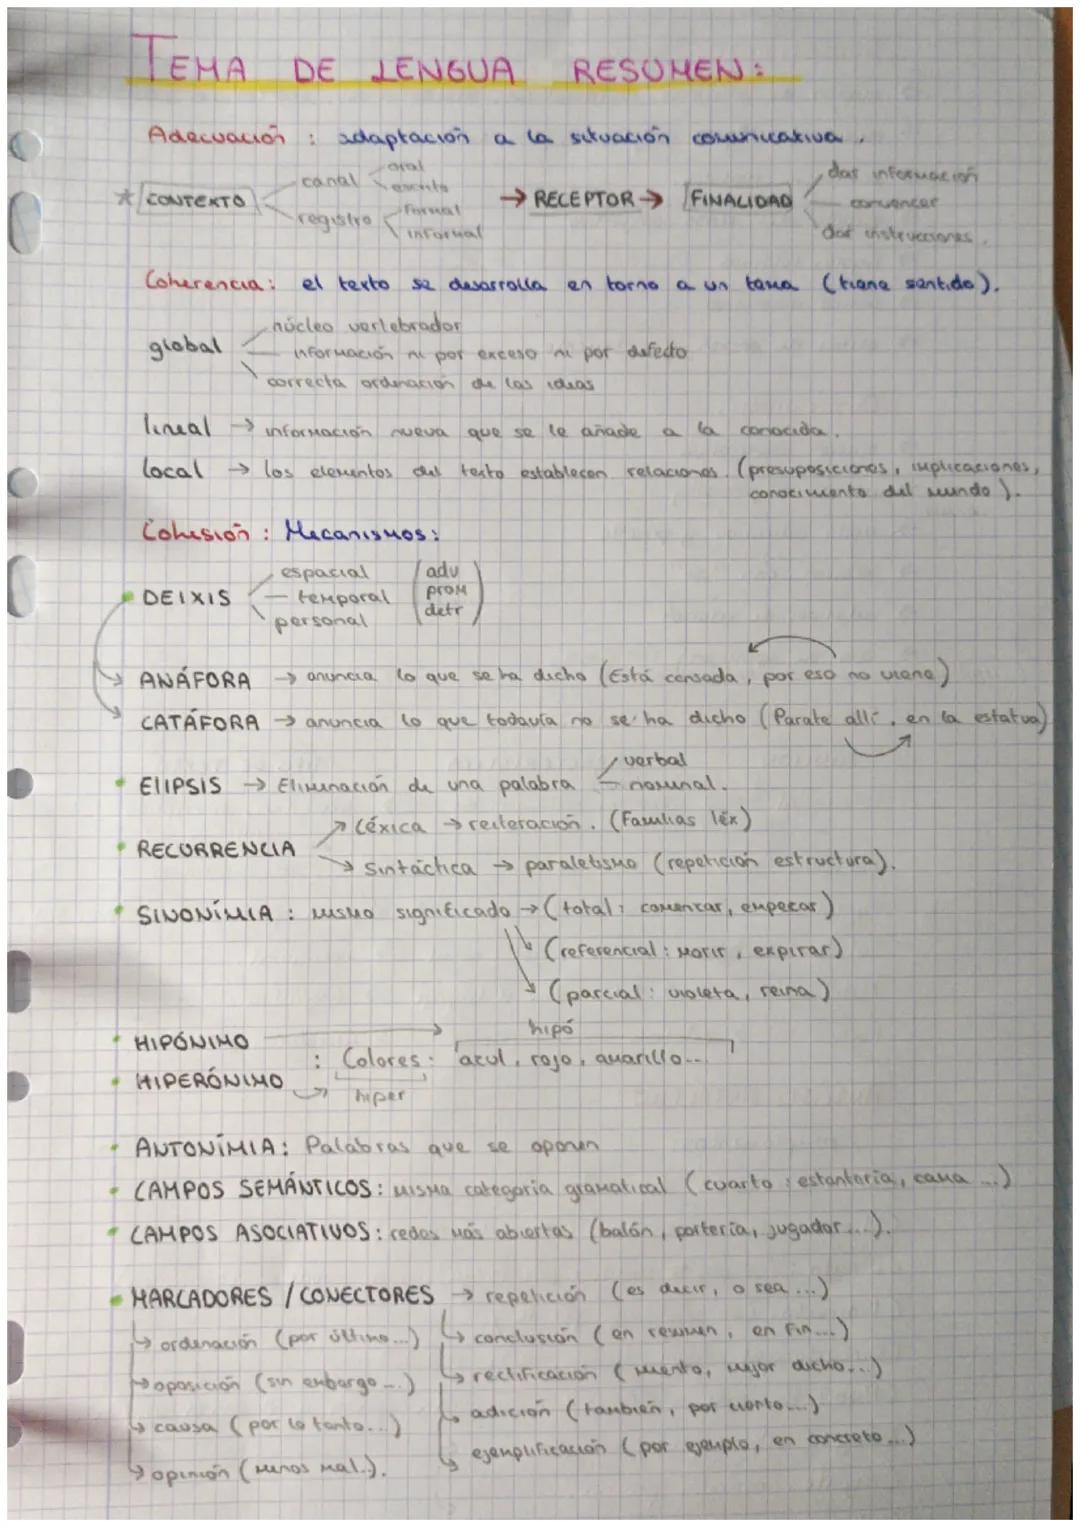 TEMA DE LENGUA RESUMEN:
Adecuación : adaptación a la situación comunicativa.
* CONTEXTO canal oral escrito registro formal informal → RECEPTOR → FINALIDAD dar información convencer dar instrucciones.
Coherencia: el texto se desarrolla en torno a un tema (tiene sentido).
global
núcleo vertebrador
información ni por exceso ni por defecto
correcta ordenación de las ideas
lineal → información nueva que se le añade a la conocida.
local → los elementos del texto establecen relaciones. (presuposiciones, implicaciones,
conocimiento del mundo).
Cohesión : Mecanismos:
DEIXIS
espacial
temporal
personal
(adv
prom
detr)
ANÁFORA → anuncia lo que se ha dicho (Está cansada, por eso no viene)
CATÁFORA → anuncia lo que todavía no se ha dicho (Parate allí, en la estatua)
ElIPSIS → Eliminación de una palabra
verbal
nominal.
RECURRENCIA
→ Léxica → reiteración. (Familias léx)
→ Sintáctica → paralelismo (repetición estructura).
SINONÍMIA : mismo significado → (total: comenzar, empezar)
(referencial: morir, expirar)
(parcial: violeta, reina)
hipó
HIPÓNIMO
: Colores: azul, rojo, amarillo...
HIPERÓNIMO → hiper
ANTONÍMIA: Palabras que se oponen
CAMPOS SEMÁNTICOS: misma categoría gramatical (cuarto: estantería, cama ...)
CAMPOS ASOCIATIVOS: redes más abiertas (balón, portería, jugador...).
MARCADORES / CONECTORES → repetición (es decir, o sea ...)
→ ordenación (por último...) → conclusión (en resumen, en fin...)
→ oposición (sin embargo...) → rectificación (miento, mejor dicho...)
→ causa (por lo tanto...) → adición (también, por cierto...)
→ opinión (menos mal..). → ejemplificación (por ejemplo, en concreto...)